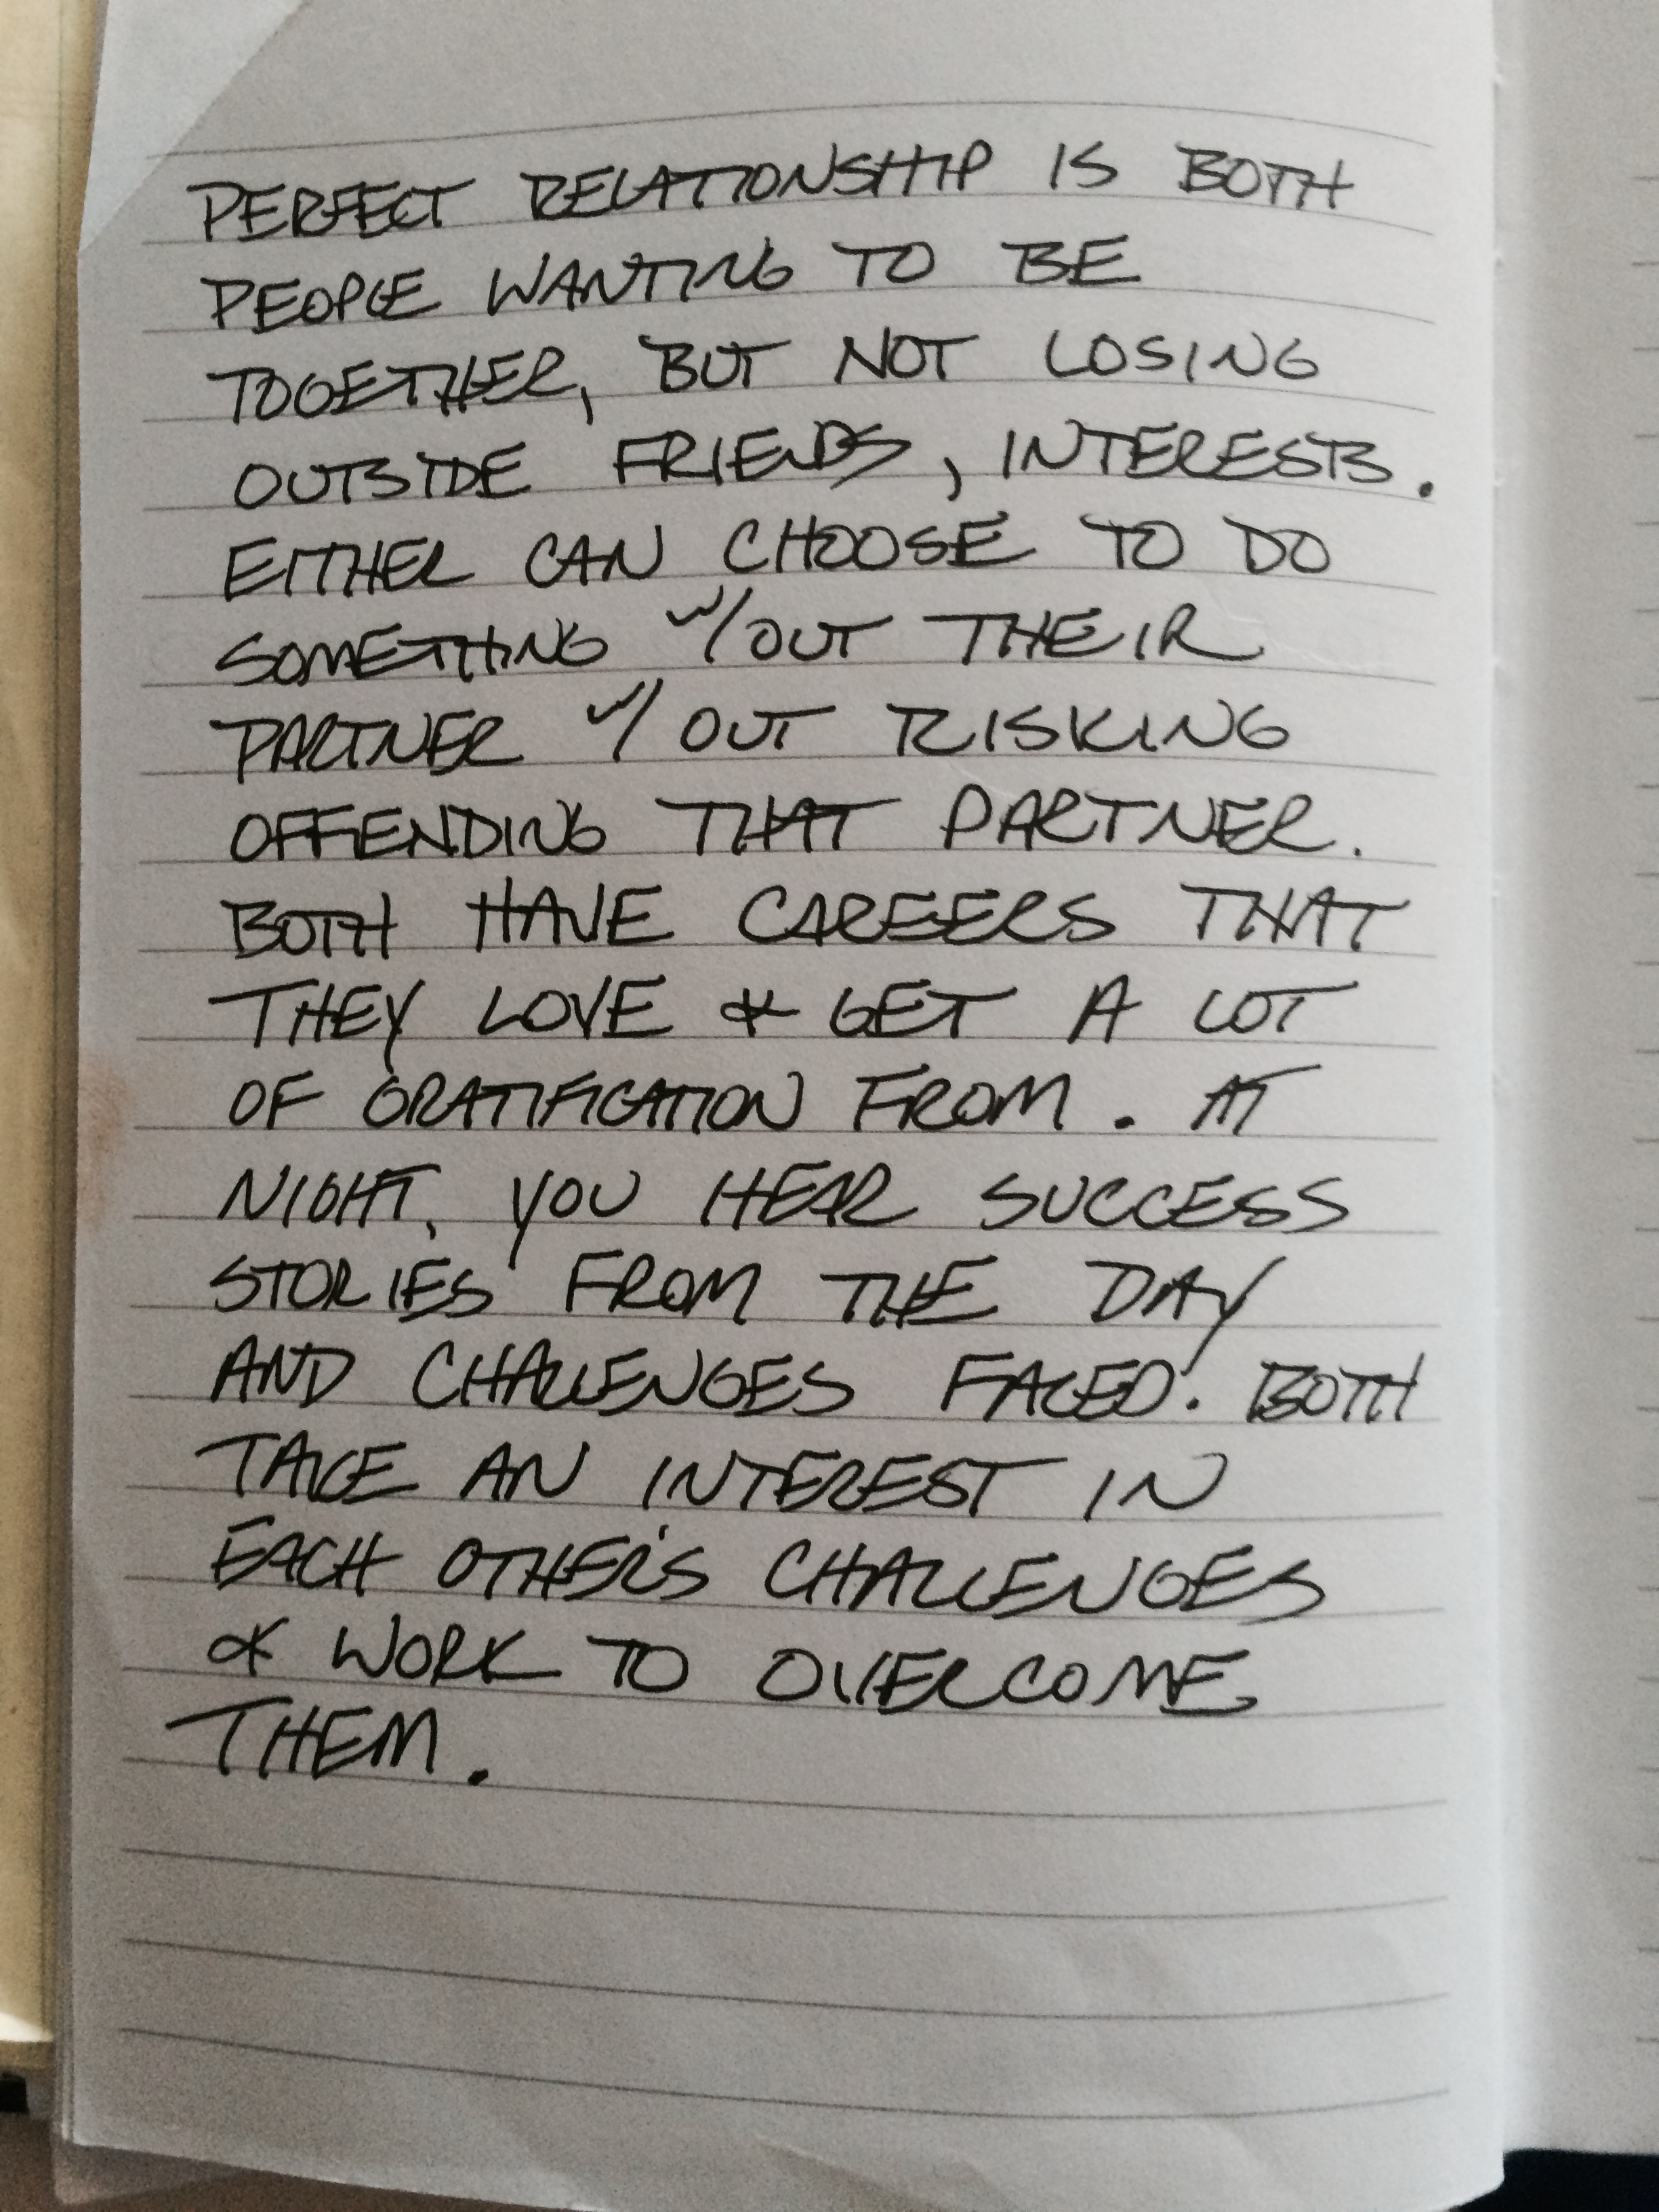 PERFECT RELATIONSHIP IS BOTH
PEOPLE WANTING TO BE
TOGETHER, BUT NOT LOSING
OUTSIDE FRIENDS, INTERESTS.
EITHER CAN CHOOSE TO DO
SOMETHING W/OUT THEIR
PARTNER W/OUT RISKING
OFFENDING THAT PARTNER.
BOTH HAVE CAREERS THAT
THEY LOVE & GET A LOT
OF GRATIFICATION FROM. AT
NIGHT, YOU HEAR SUCCESS
STORIES FROM THE DAY
AND CHALLENGES FACED. BOTH
TAKE AN INTEREST IN
EACH OTHER'S CHALLENGES
& WORK TO OVERCOME
THEM.